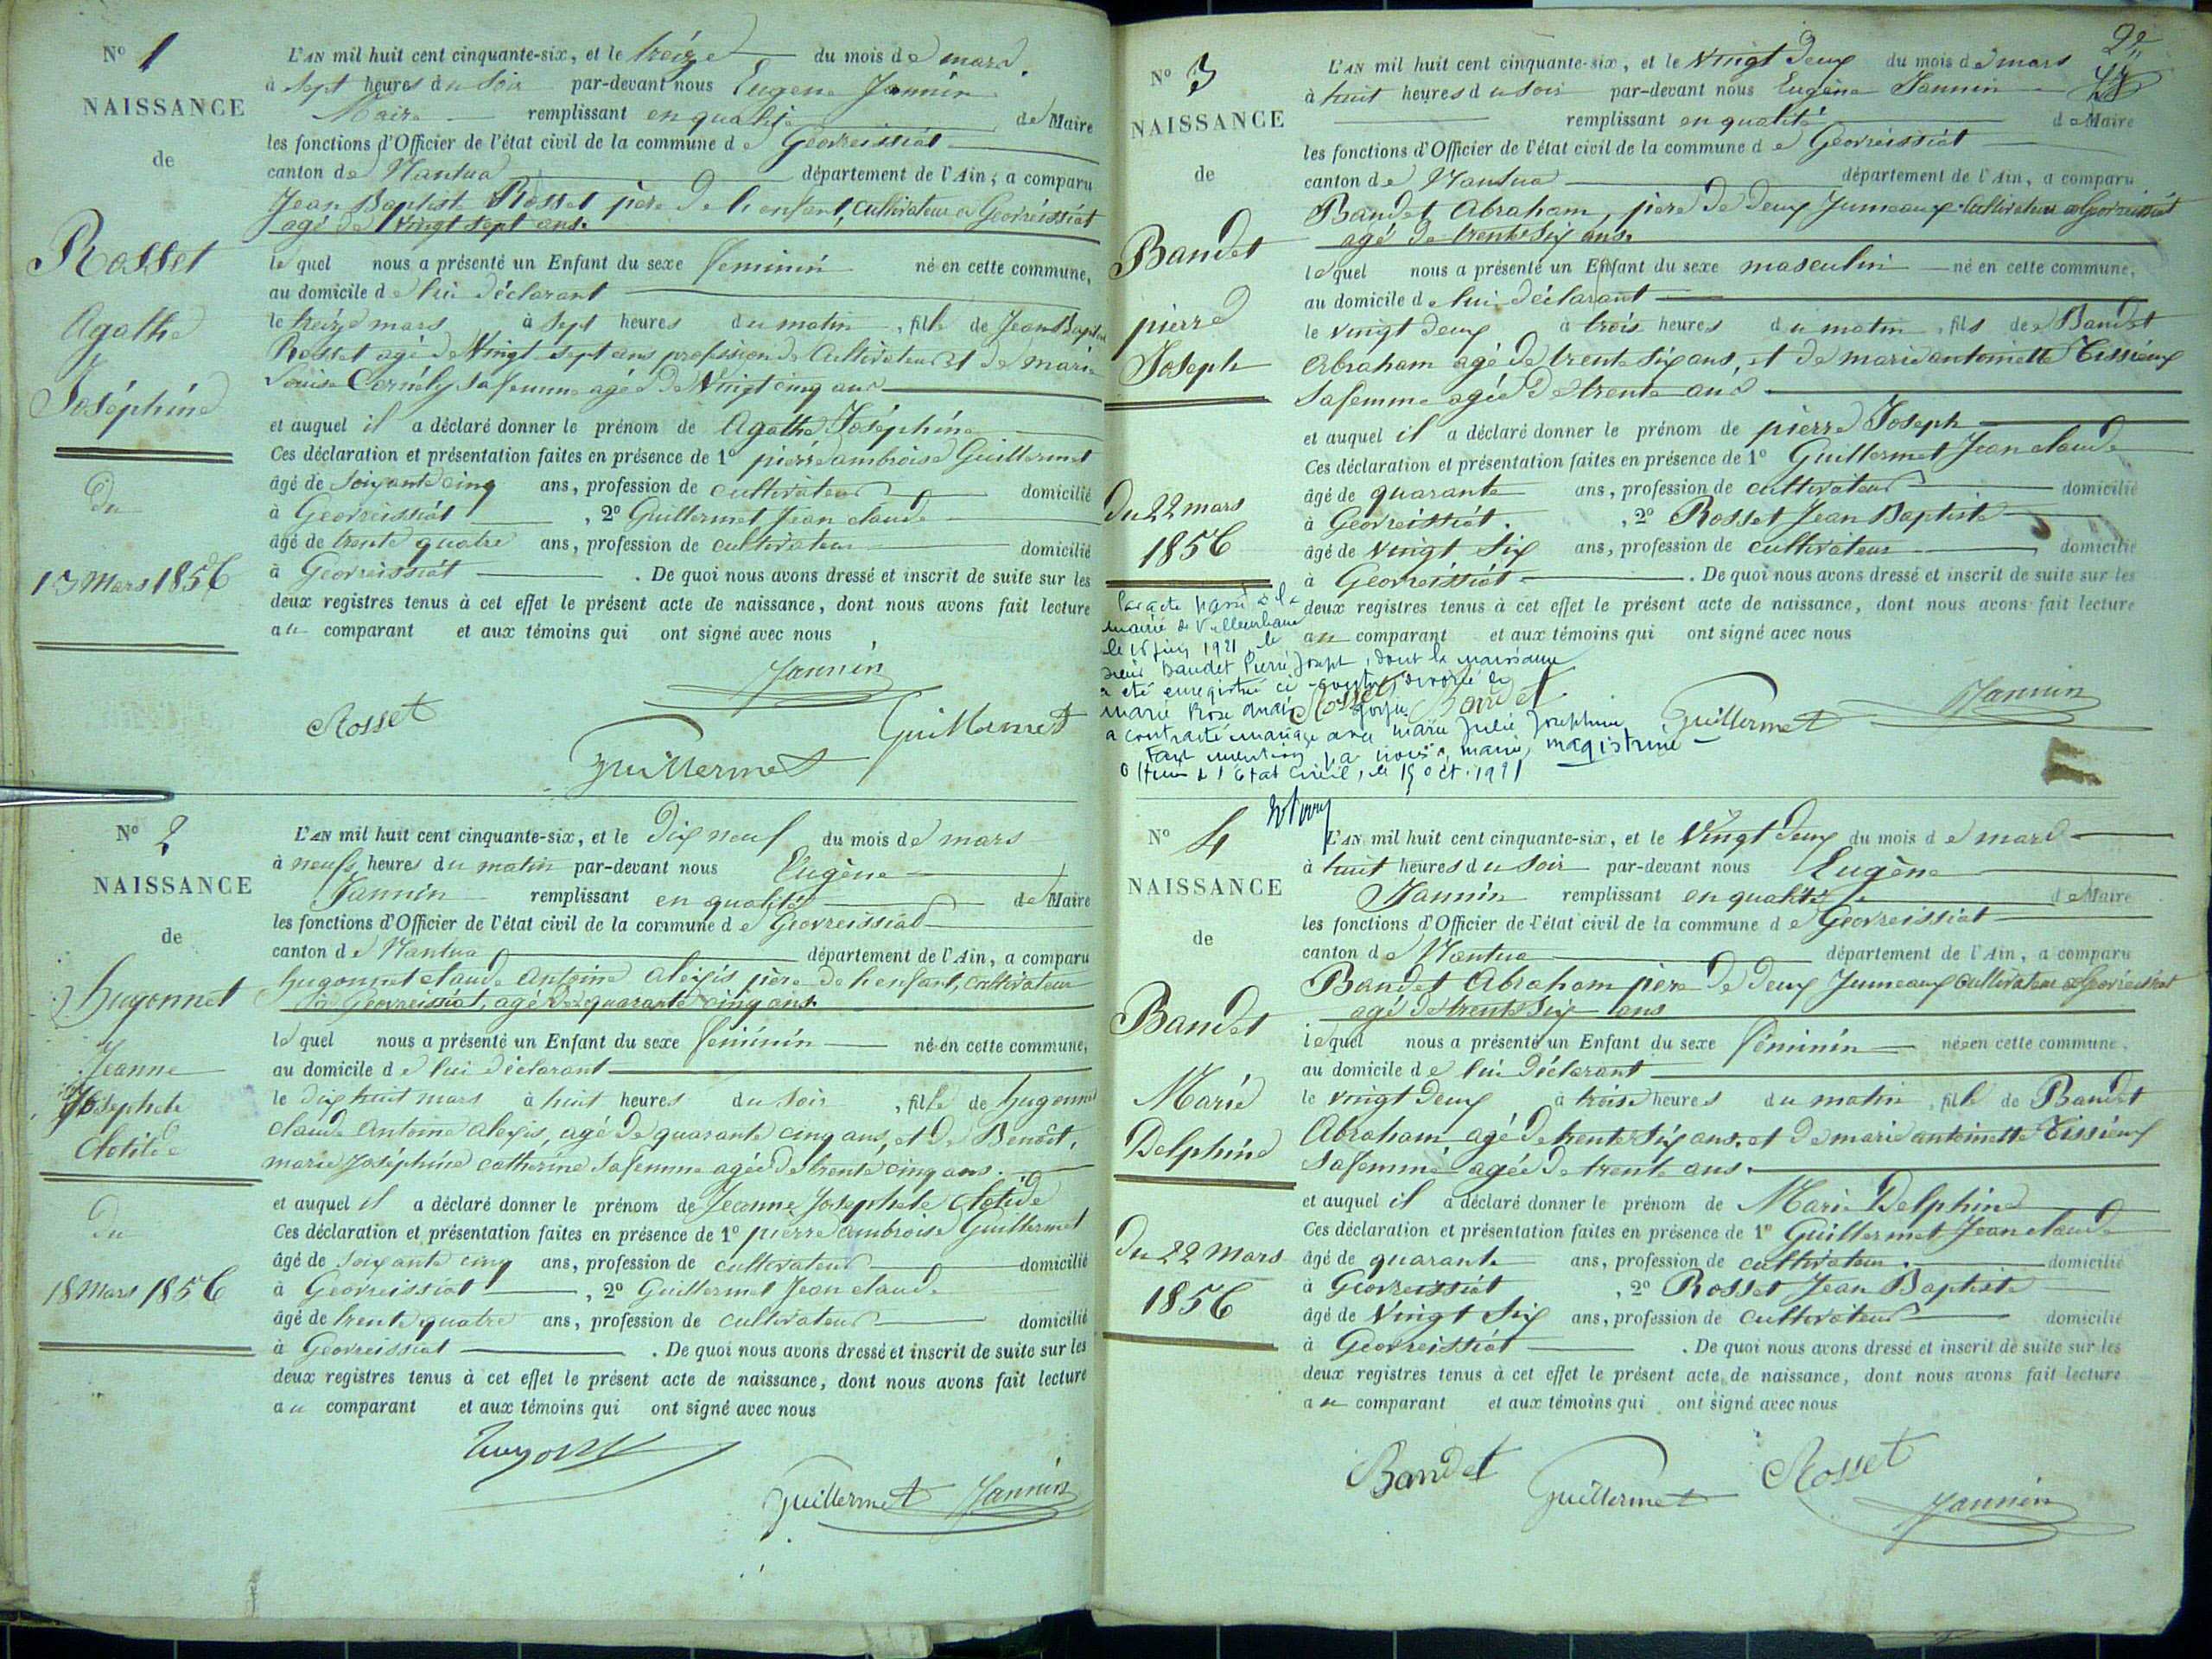 N° 1
NAISSANCE
de
Rosset
Agathe
Joséphine
du
13 Mars 1856
L'AN mil huit cent cinquante-six, et le treize du mois de mars.
à sept heures du soir par-devant nous Eugène Jannin
Maire remplissant en qualité de Maire
les fonctions d'Officier de l'état civil de la commune de Géovreissiat
canton de Nantua département de l'Ain, a comparu
Jean Baptiste Rosset père de l'enfant, cultivateur à Géovreissiat
agé de vingt sept ans.
lequel nous a présenté un Enfant du sexe féminin né en cette commune,
au domicile de lui déclarant
le treize mars à sept heures du matin, fille de Jean Baptiste
Rosset agé de vingt-sept ans profession de cultivateur et de marie
Louise Cornély sa femme agée de vingt cinq ans
et auquel il a déclaré donner le prénom de Agathe Joséphine
Ces déclaration et présentation faites en présence de 1° pierre ambroise Guillermet
âgé de soixante cinq ans, profession de cultivateur domicilié
à Géovreissiat, 2° Guillermet Jean claude
âgé de trente quatre ans, profession de cultivateur domicilié
à Géovreissiat. De quoi nous avons dressé et inscrit de suite sur les
deux registres tenus à cet effet le présent acte de naissance, dont nous avons fait lecture
au comparant et aux témoins qui ont signé avec nous
Jannin
Rosset
Guillermet
Guillermet
N° 2
NAISSANCE
de
hugonnet
Jeanne
Josephete
Clotilde
du
18 Mars 1856
L'AN mil huit cent cinquante-six, et le dix neuf du mois de mars
à neuf heures du matin par-devant nous Eugène
Jannin remplissant en qualité de Maire
les fonctions d'Officier de l'état civil de la commune de Géovreissiat
canton de Nantua département de l'Ain, a comparu
hugonnet claude Antoine alexis père de l'enfant, cultivateur
à Géovreissiat, agé de quarante cinq ans.
lequel nous a présenté un Enfant du sexe féminin né en cette commune,
au domicile de lui déclarant
le dix huit mars à huit heures du soir, fille de hugonnet
claude Antoine alexis, agé de quarante cinq ans, et de Benoit,
marie Joséphine catherine sa femme agée de trente cinq ans.
et auquel il a déclaré donner le prénom de Jeanne Josephete clotilde
Ces déclaration et présentation faites en présence de 1° pierre ambroise Guillermet
âgé de soixante cinq ans, profession de cultivateur domicilié
à Géovreissiat, 2° Guillermet Jean claude
âgé de trente quatre ans, profession de cultivateur domicilié
à Géovreissiat. De quoi nous avons dressé et inscrit de suite sur les
deux registres tenus à cet effet le présent acte de naissance, dont nous avons fait lecture
au comparant et aux témoins qui ont signé avec nous
Guillermet Jannin
N° 3
NAISSANCE
de
Baudet
pierre
Joseph
du 22 mars
1856
L'AN mil huit cent cinquante-six, et le vingt deux du mois de mars
à huit heures du soir par-devant nous Eugène Jannin
remplissant en qualité de Maire
les fonctions d'Officier de l'état civil de la commune de Géovreissiat
canton de Nantua département de l'Ain, a comparu
Baudet Abraham, père de deux Jumeaux cultivateur à Géovreissiat
agé de trente six ans.
lequel nous a présenté un Enfant du sexe masculin né en cette commune,
au domicile de lui déclarant
le vingt deux à trois heures du matin, fils de Baudet
Abraham agé de trente six ans, et de marie antoinette Tissieux
sa femme agée de trente ans
et auquel il a déclaré donner le prénom de pierre Joseph
Ces déclaration et présentation faites en présence de 1° Guillermet Jean claude
âgé de quarante ans, profession de cultivateur domicilié
à Géovreissiat, 2° Rosset Jean Baptiste
âgé de vingt six ans, profession de cultivateur domicilié
à Géovreissiat. De quoi nous avons dressé et inscrit de suite sur les
deux registres tenus à cet effet le présent acte de naissance, dont nous avons fait lecture
au comparant et aux témoins qui ont signé avec nous
Par acte passé à la
mairie de Villeurbanne
le 16 juin 1921, le
sieur Baudet Pierre Joseph, dont la naissance
a été enregistrée ci-contre, divorcé de
Marie Rose
a contracté mariage avec Marie Julie Joséphine
Fait mention par nous, maire,
Officier de l'Etat Civil, le 15 oct. 1921
Rosset Baudet Guillermet Jannin
N° 4
NAISSANCE
de
Baudet
Marie
Delphine
du 22 Mars
1856
L'AN mil huit cent cinquante-six, et le vingt deux du mois de mars
à huit heures du soir par-devant nous Eugène
Jannin remplissant en qualité de Maire
les fonctions d'Officier de l'état civil de la commune de Géovreissiat
canton de Nantua département de l'Ain, a comparu
Baudet Abraham père de deux Jumeaux cultivateur à Géovreissiat
agé de trente six ans
lequel nous a présenté un Enfant du sexe féminin née en cette commune.
au domicile de lui déclarant
le vingt deux à trois heures du matin, fille de Baudet
Abraham agé de trente six ans, et de marie antoinette Tissieux
sa femme agée de trente ans.
et auquel il a déclaré donner le prénom de Marie Delphine
Ces déclaration et présentation faites en présence de 1° Guillermet Jean claude
âgé de quarante ans, profession de cultivateur. domicilié
à Géovreissiat, 2° Rosset Jean Baptiste
âgé de vingt six ans, profession de cultivateur domicilié
à Géovreissiat. De quoi nous avons dressé et inscrit de suite sur les
deux registres tenus à cet effet le présent acte de naissance, dont nous avons fait lecture
au comparant et aux témoins qui ont signé avec nous
Baudet Guillermet Rosset
Jannin